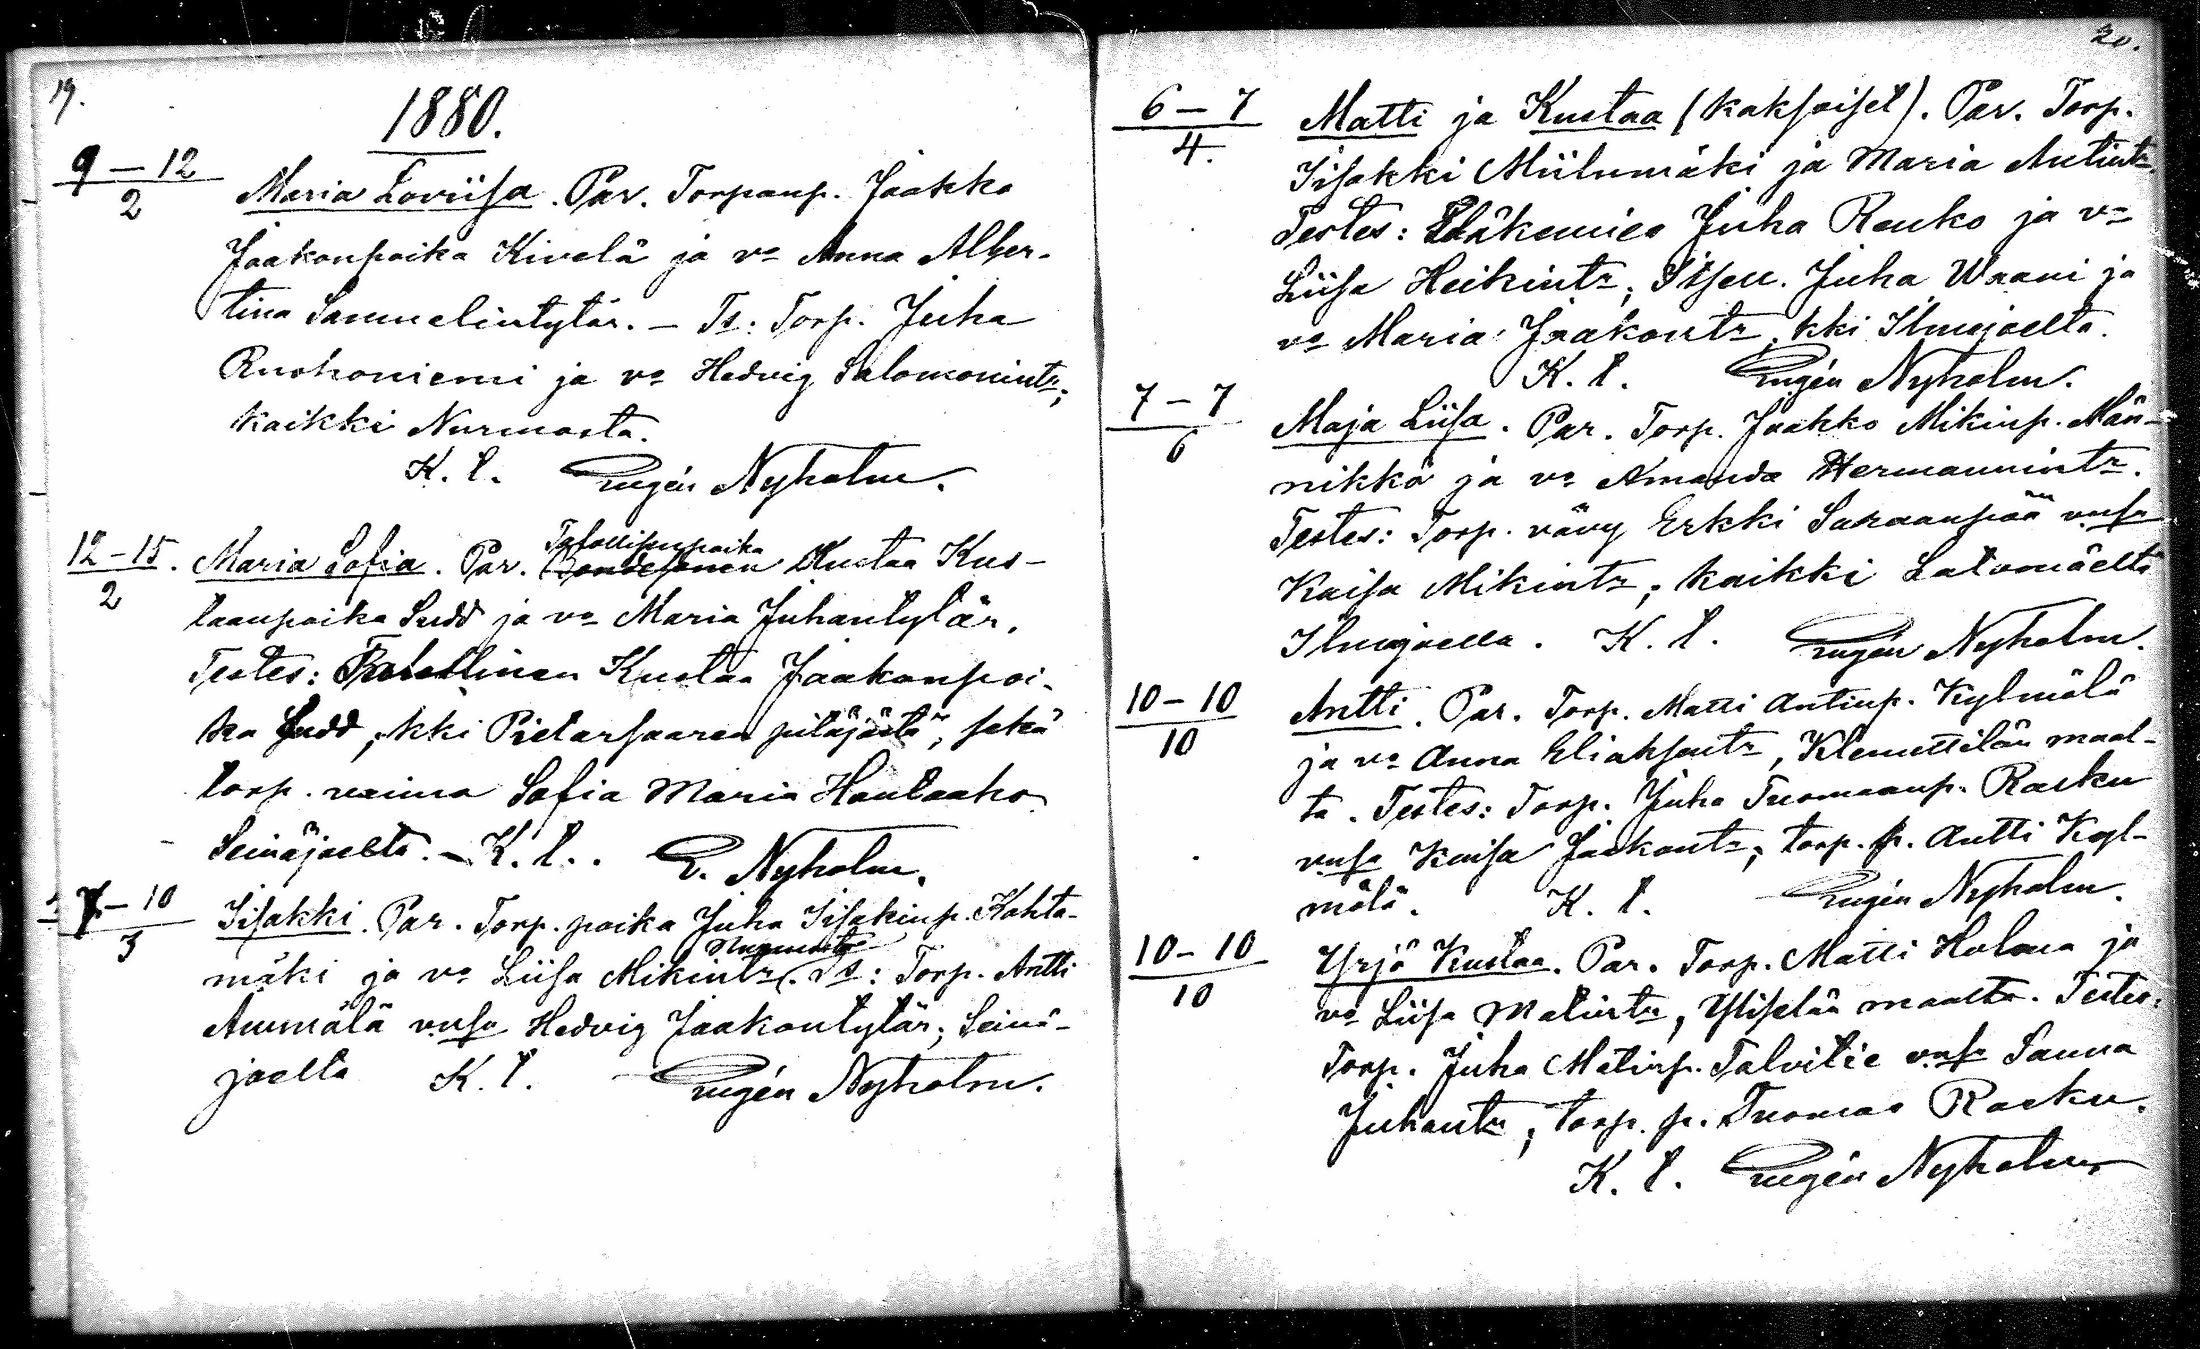 19.
1880.
9 – 12
2
Maria Loviisa. Par. Torpanp. Jaakko
Jaakonpoika Kivelä ja vo Anna Alber-
tina Samuelintytär. – Ts: Torp. Juha
Ruohoniemi ja vo Hedvig Salomonintr;
kaikki Nurmosta.
K. l. Eugén Nyholm.
12 – 15.
2
Talollisenpoika
Maria Sofia. Par. Bondesonen Kustaa Kus-
taanpoika Sudd ja vo Maria Juhantytär.
Testes: Talollinen Kustaa Jaakonpoi-
ka Sudd, kki Pietarsaaren pitäjästä, sekä
torp. vaimo Sofia Maria Hautaaho
Seinäjoelta. – K. l. E. Nyholm.
7 – 10
3
Iisakki. Par. Torp. poika Juha Iisakinp. Kohta-
Nurmosta
mäki ja vo Liisa Mikintr. Ts: Torp. Antti
Ammälä vnsa Hedvig Jaakontytär; Seinä-
joelta K. l. Eugén Nyholm.
20.
6 – 7
4.
Matti ja Kustaa (kaksoiset). Par. Torp.
Iisakki Miilumäki ja Maria Antintr
Testes: Juha Renko ja vo
Liisa Heikintr; Itsell. Juha Waani ja
vo Maria Jaakontr, kki Ilmajoelta.
K. l. Eugén Nyholm.
7 – 7
6
Maja Liisa. Par. Torp. Jaakko Mikinp. Män-
nikkö ja vo Amanda Hermannintr.
Testes: Torp. vävy Erkki vnsa
Kaisa Mikintr; kaikki Latomäeltä
Ilmajoella. K. l. Eugén Nyholm.
10 – 10
10
Antti. Par. Torp. Matti Antinp. Kylmälä
ja vo Anna Eliaksentr, Klemettilän maal-
ta. Testes: Torp. Juho Tuomaanp. Rasku
vnsa Kaisa Jaakontr; torp. p. Antti Kyl-
mälä. K. l. Eugén Nyholm.
10 – 10
10
Yrjö Kustaa. Par. Torp. Matti Holma ja
vo Liisa Matintr, Yliselän maalta. Testes:
Torp. Juha Matinp. Talvitie vnsa Sanna
Juhantr; torp. p. Tuomas Rasku.
K. l. Eugén Nyholm